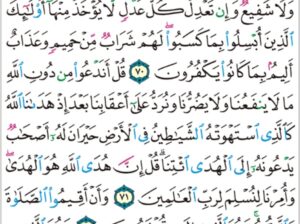 وَلَا شَفِيعٌ وَإِن تَعْدِلْ كُلَّ عَدْلٍ لَّا يُؤْخَذْ مِنْهَا أُو۟لَٰٓئِكَ
ٱلَّذِينَ أُبْسِلُوا۟ بِمَا كَسَبُوا۟ لَهُمْ شَرَابٌ مِّنْ حَمِيمٍ وَعَذَابٌ
أَلِيمٌۢ بِمَا كَانُوا۟ يَكْفُرُونَ ٧٠ قُلْ أَنَدْعُوا۟ مِن دُونِ ٱللَّهِ
مَا لَا يَنفَعُنَا وَلَا يَضُرُّنَا وَنُرَدُّ عَلَىٰٓ أَعْقَابِنَا بَعْدَ إِذْ هَدَىٰنَا ٱللَّهُ
كَٱلَّذِى ٱسْتَهْوَتْهُ ٱلشَّيَٰطِينُ فِى ٱلْأَرْضِ حَيْرَانَ لَهُۥٓ أَصْحَٰبٌ
يَدْعُونَهُۥٓ إِلَى ٱلْهُدَى ٱئْتِنَا قُلْ إِنَّ هُدَى ٱللَّهِ هُوَ ٱلْهُدَىٰ
وَأُمِرْنَا لِنُسْلِمَ لِرَبِّ ٱلْعَٰلَمِينَ ٧١ وَأَنْ أَقِيمُوا۟ ٱلصَّلَوٰةَ